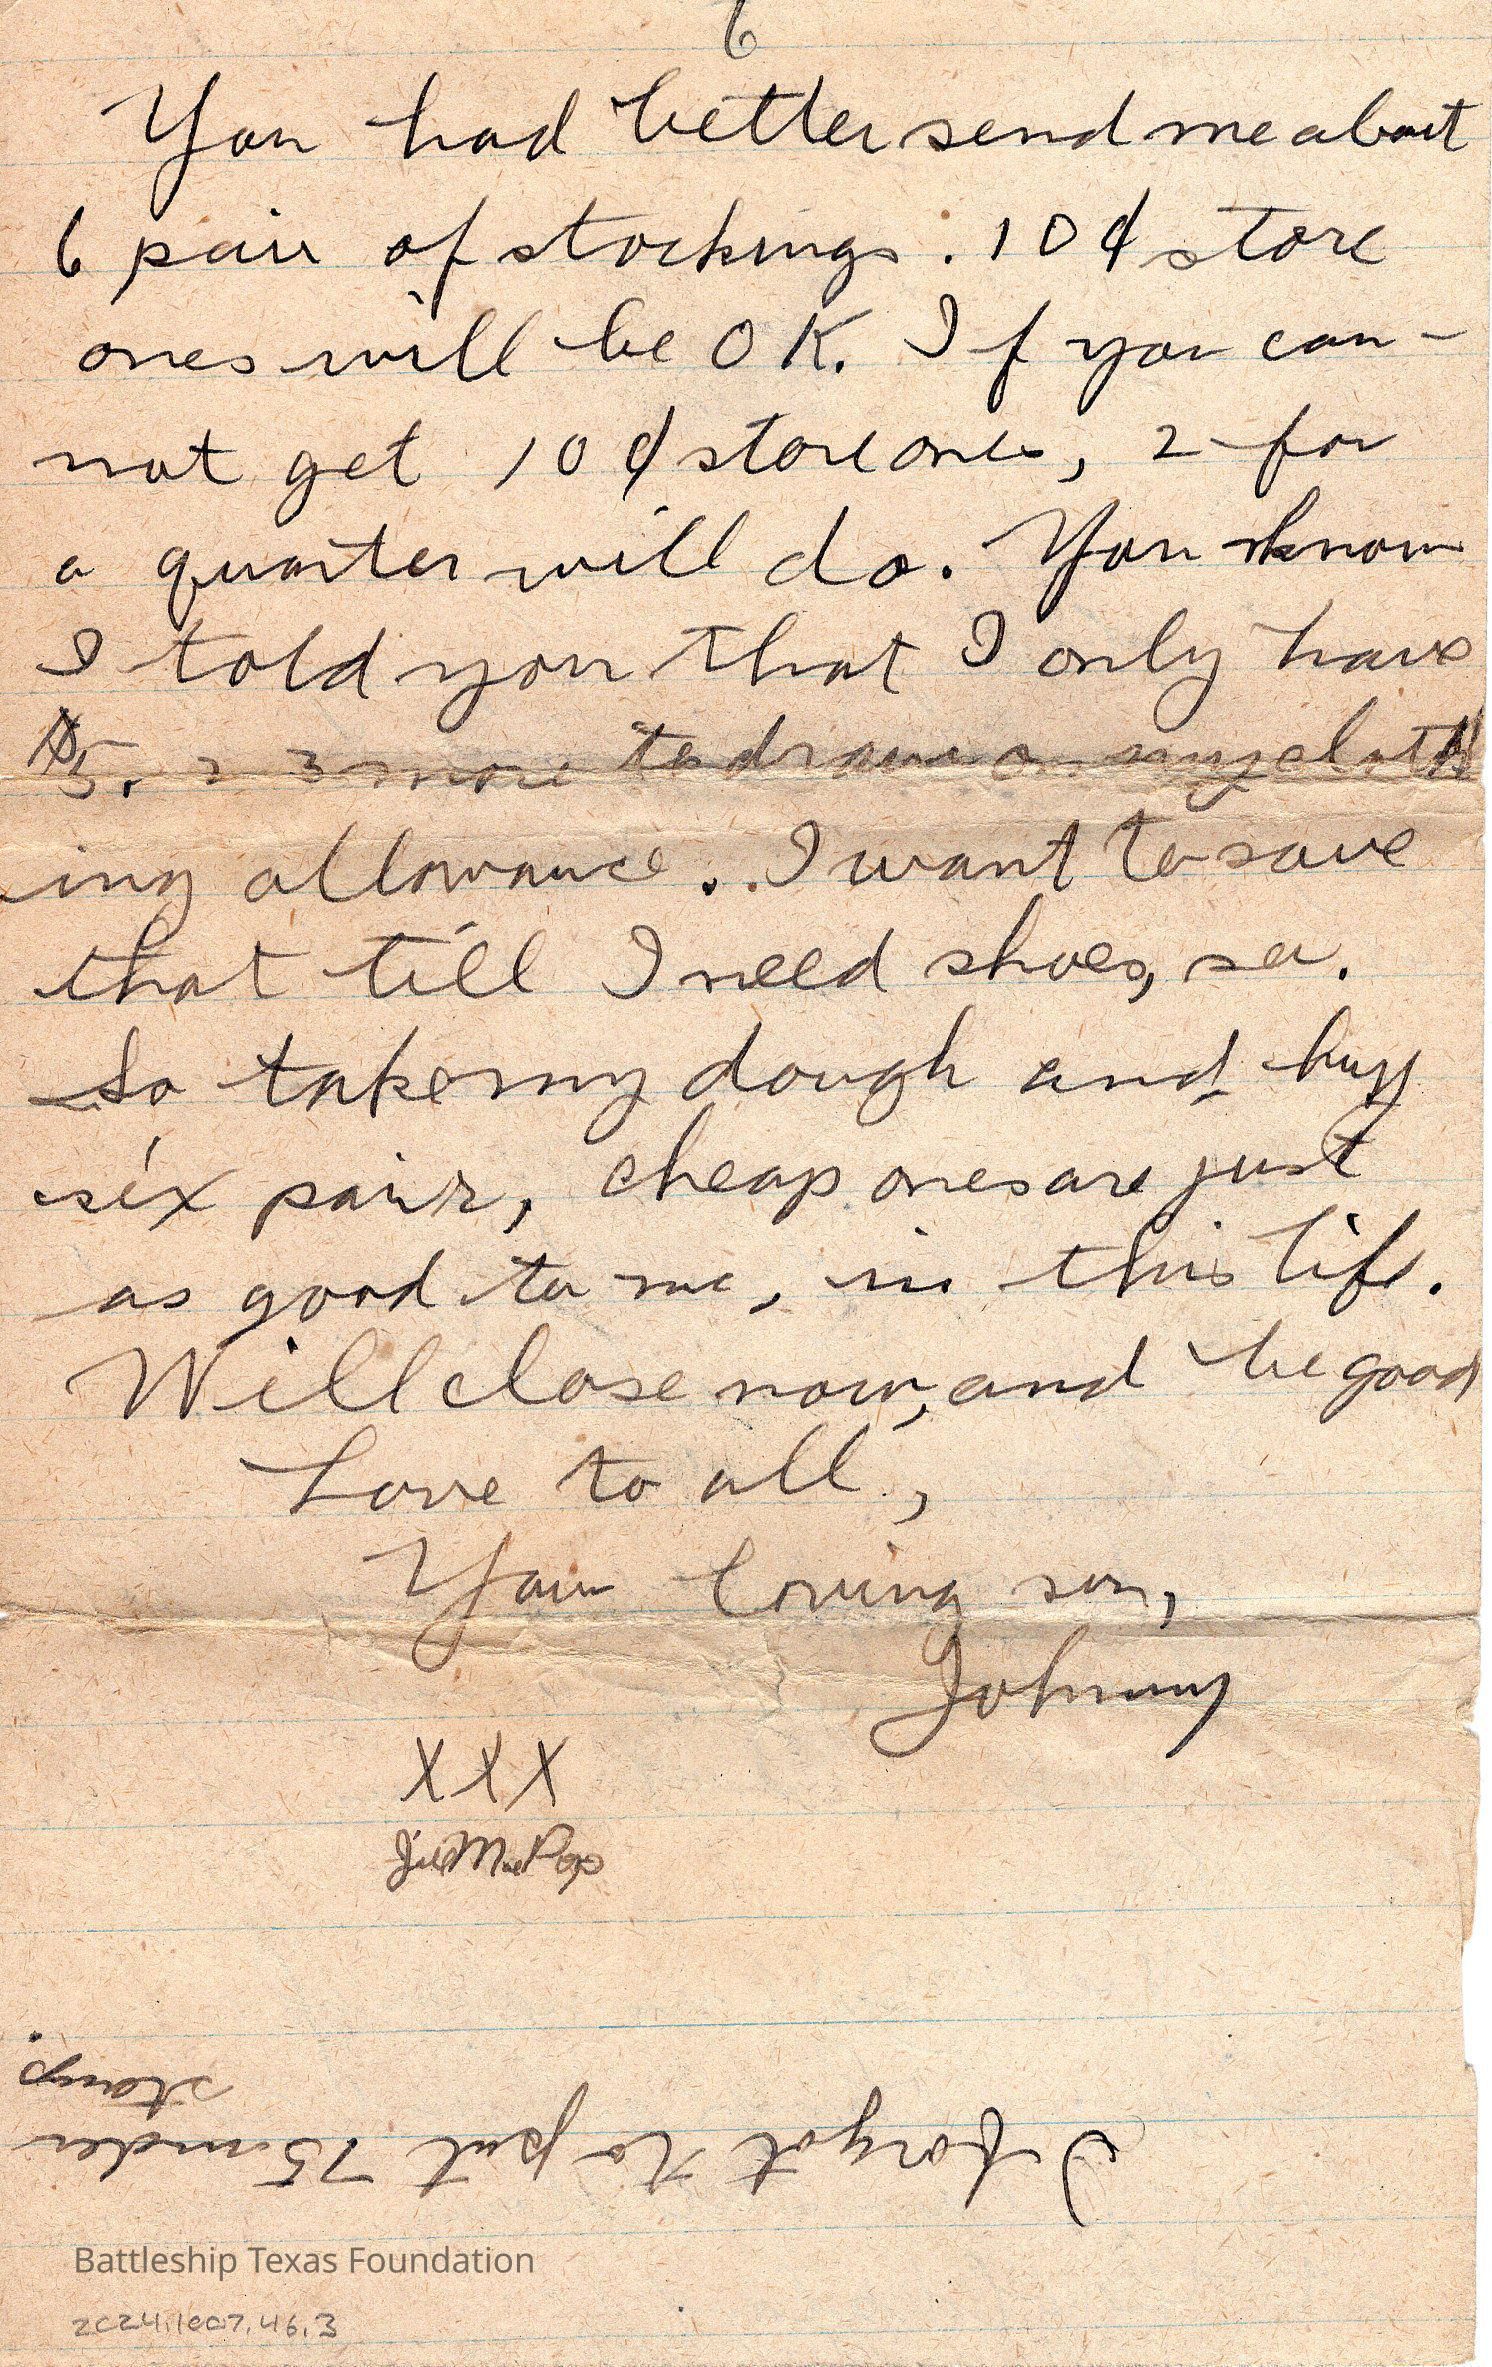 6
You had better send me about
6 pair of stockings. 10¢ store
ones will be OK. If you can-
not get 10¢ store ones, 2 for
a quarter will do. You know
I told you that I only have
$5. 3 more to draw on my cloth
ing allowance. I want to save
that till I need shoes,
So take my dough and buy
six pairs, cheap ones are just
as good to me, in this life.
Will close now, and be good
Love to all,
Your loving son,
Johnny
XXX
I forgot to put 75 under
stamp.
Battleship Texas Foundation
2024.1007.46.3